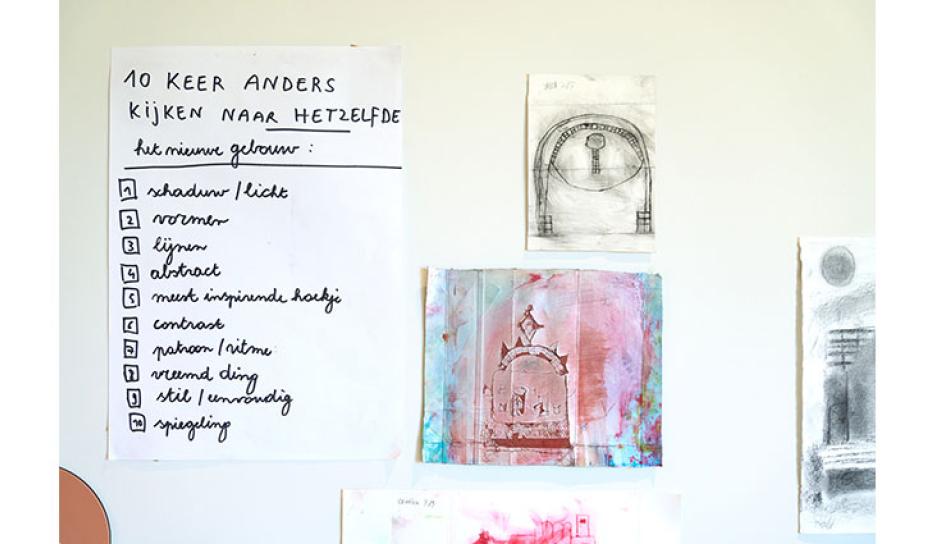 10 KEER ANDERS
KIJKEN NAAR HETZELFDE
het nieuwe gebouw :
1 schaduw / licht
2 vormen
3 lijnen
4 abstract
5 meest inspirende hoekje
6 contrast
7 patroon / ritme
8 vreemd ding
9 stil / eenvoudig
10 spiegeling